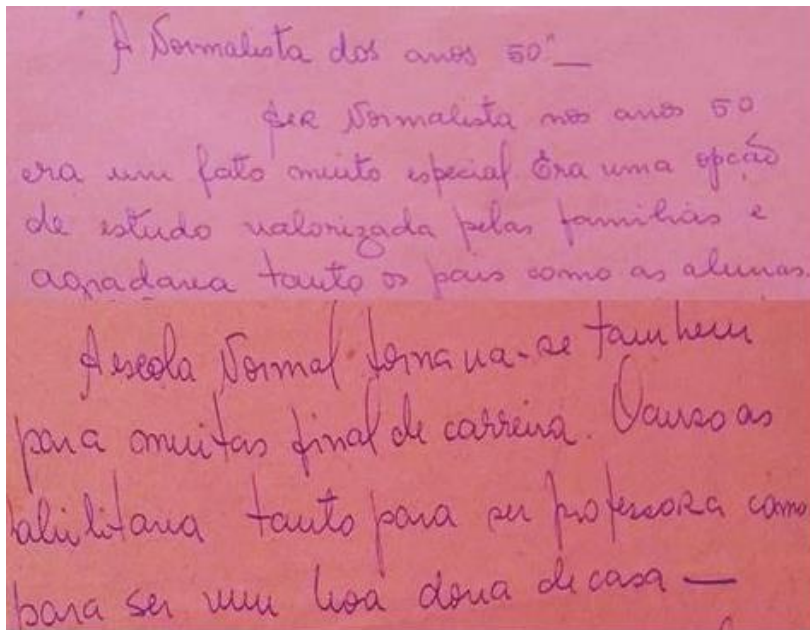 A Normalista dos anos 50" —
Ser Normalista nos anos 50
era um fato muito especial Era uma opção
de estudo valorizada pelas famílias e
agradava tanto os pais como as alunas.
A escola Normal tornava-se também
para muitas final de carreira. O curso as
habilitava tanto para ser professora como
para ser um boa dona de casa —